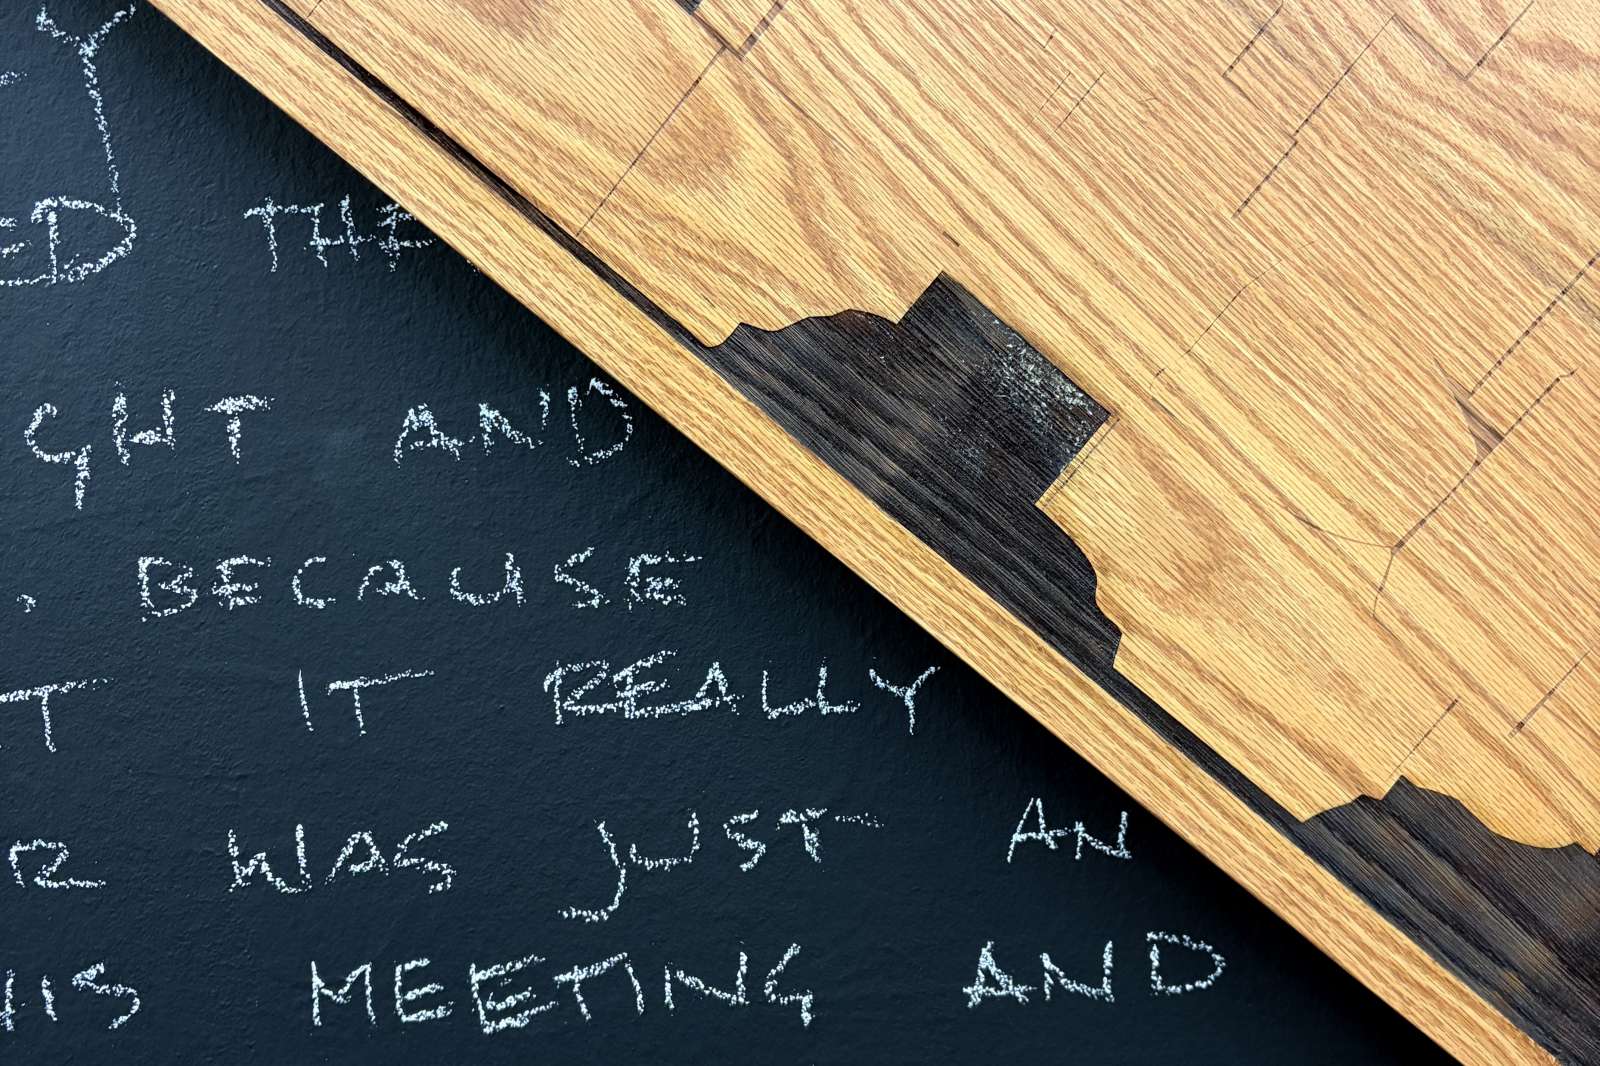 Y
ED THE
GHT AND
. BECAUSE
T IT REALLY
R WAS JUST AN
HIS MEETING AND